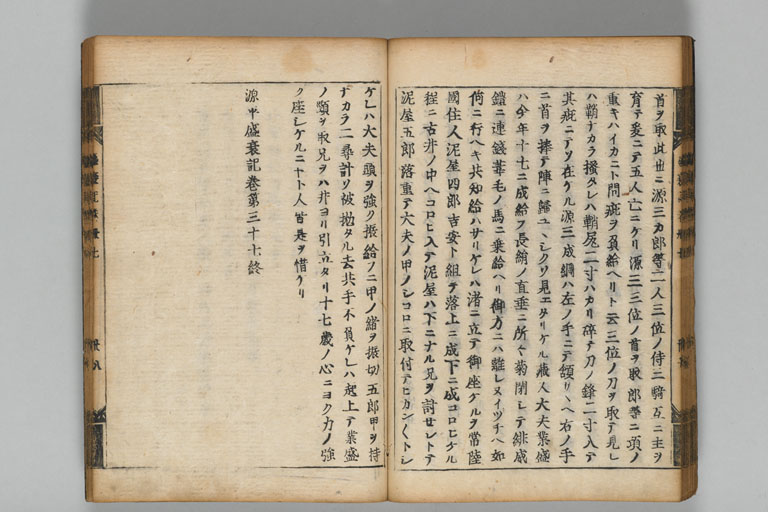 首ヲ取此世ニ源三カ郎等二人三位ノ侍二騎互ニ主ヲ
育テ爰ニテ五人亡ニケリ源三三位ノ首ヲ取郎等ニ項ノ
重キハイカニト問疵ヲ負給ヘリト云三位ノ刀ヲ取テ見レ
ハ鞘ナカラ撥タレハ鞘尾二寸ハカリ碎テ刀ノ鋒二寸入テ
其疵ニテソ在ケル源三成綱ハ左ノ手ニテ頷リヽヘ右ノ手
ニ首ヲ捧テ陣ニ歸ユヽシクソ見エタリケル藏人大夫業盛
ハ今年十七ニ成給フ長絹ノ直垂ニ所々菊閉シテ緋威
鎧ニ連錢葦毛ノ馬ニ乗給ヘリ御方ニハ離レヌイツチヘ如
何ニ行ヘキ共知給ハサリケレハ渚ニ立テ御座ケルヲ常陸
國住人泥屋四郎吉安ト組テ落上ニ成下ニ成コロヒケル
程ニ古井ノ中ヘコロヒ入テ泥屋ハ下ニナル兄ヲ討セシトテ
泥屋五郎落重テ大夫ノ甲ノシコロニ取付テヒカン〱トシ
ケレハ大夫頭ヲ強ク振給フニ甲ノ緒ヲ振切五郎甲ヲ持
ナカラ二尋計ソ被抛タル去共手不負ケレハ起上テ業盛
ノ頸ヲ取兄ヲハ井ヨリ引立タリ十七歳ノ心ニヨク力ノ強
ク座シケルニヤト人皆是ヲ惜ケリ
源平盛衰記巻第三十七終